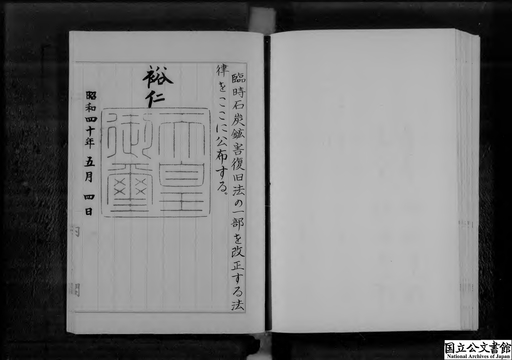 臨時石炭鉱害復旧法の一部を改正する法
律をここに公布する。
裕仁
天皇
御璽
昭和四十年五月四日
国立公文書館
National Archives of Japan